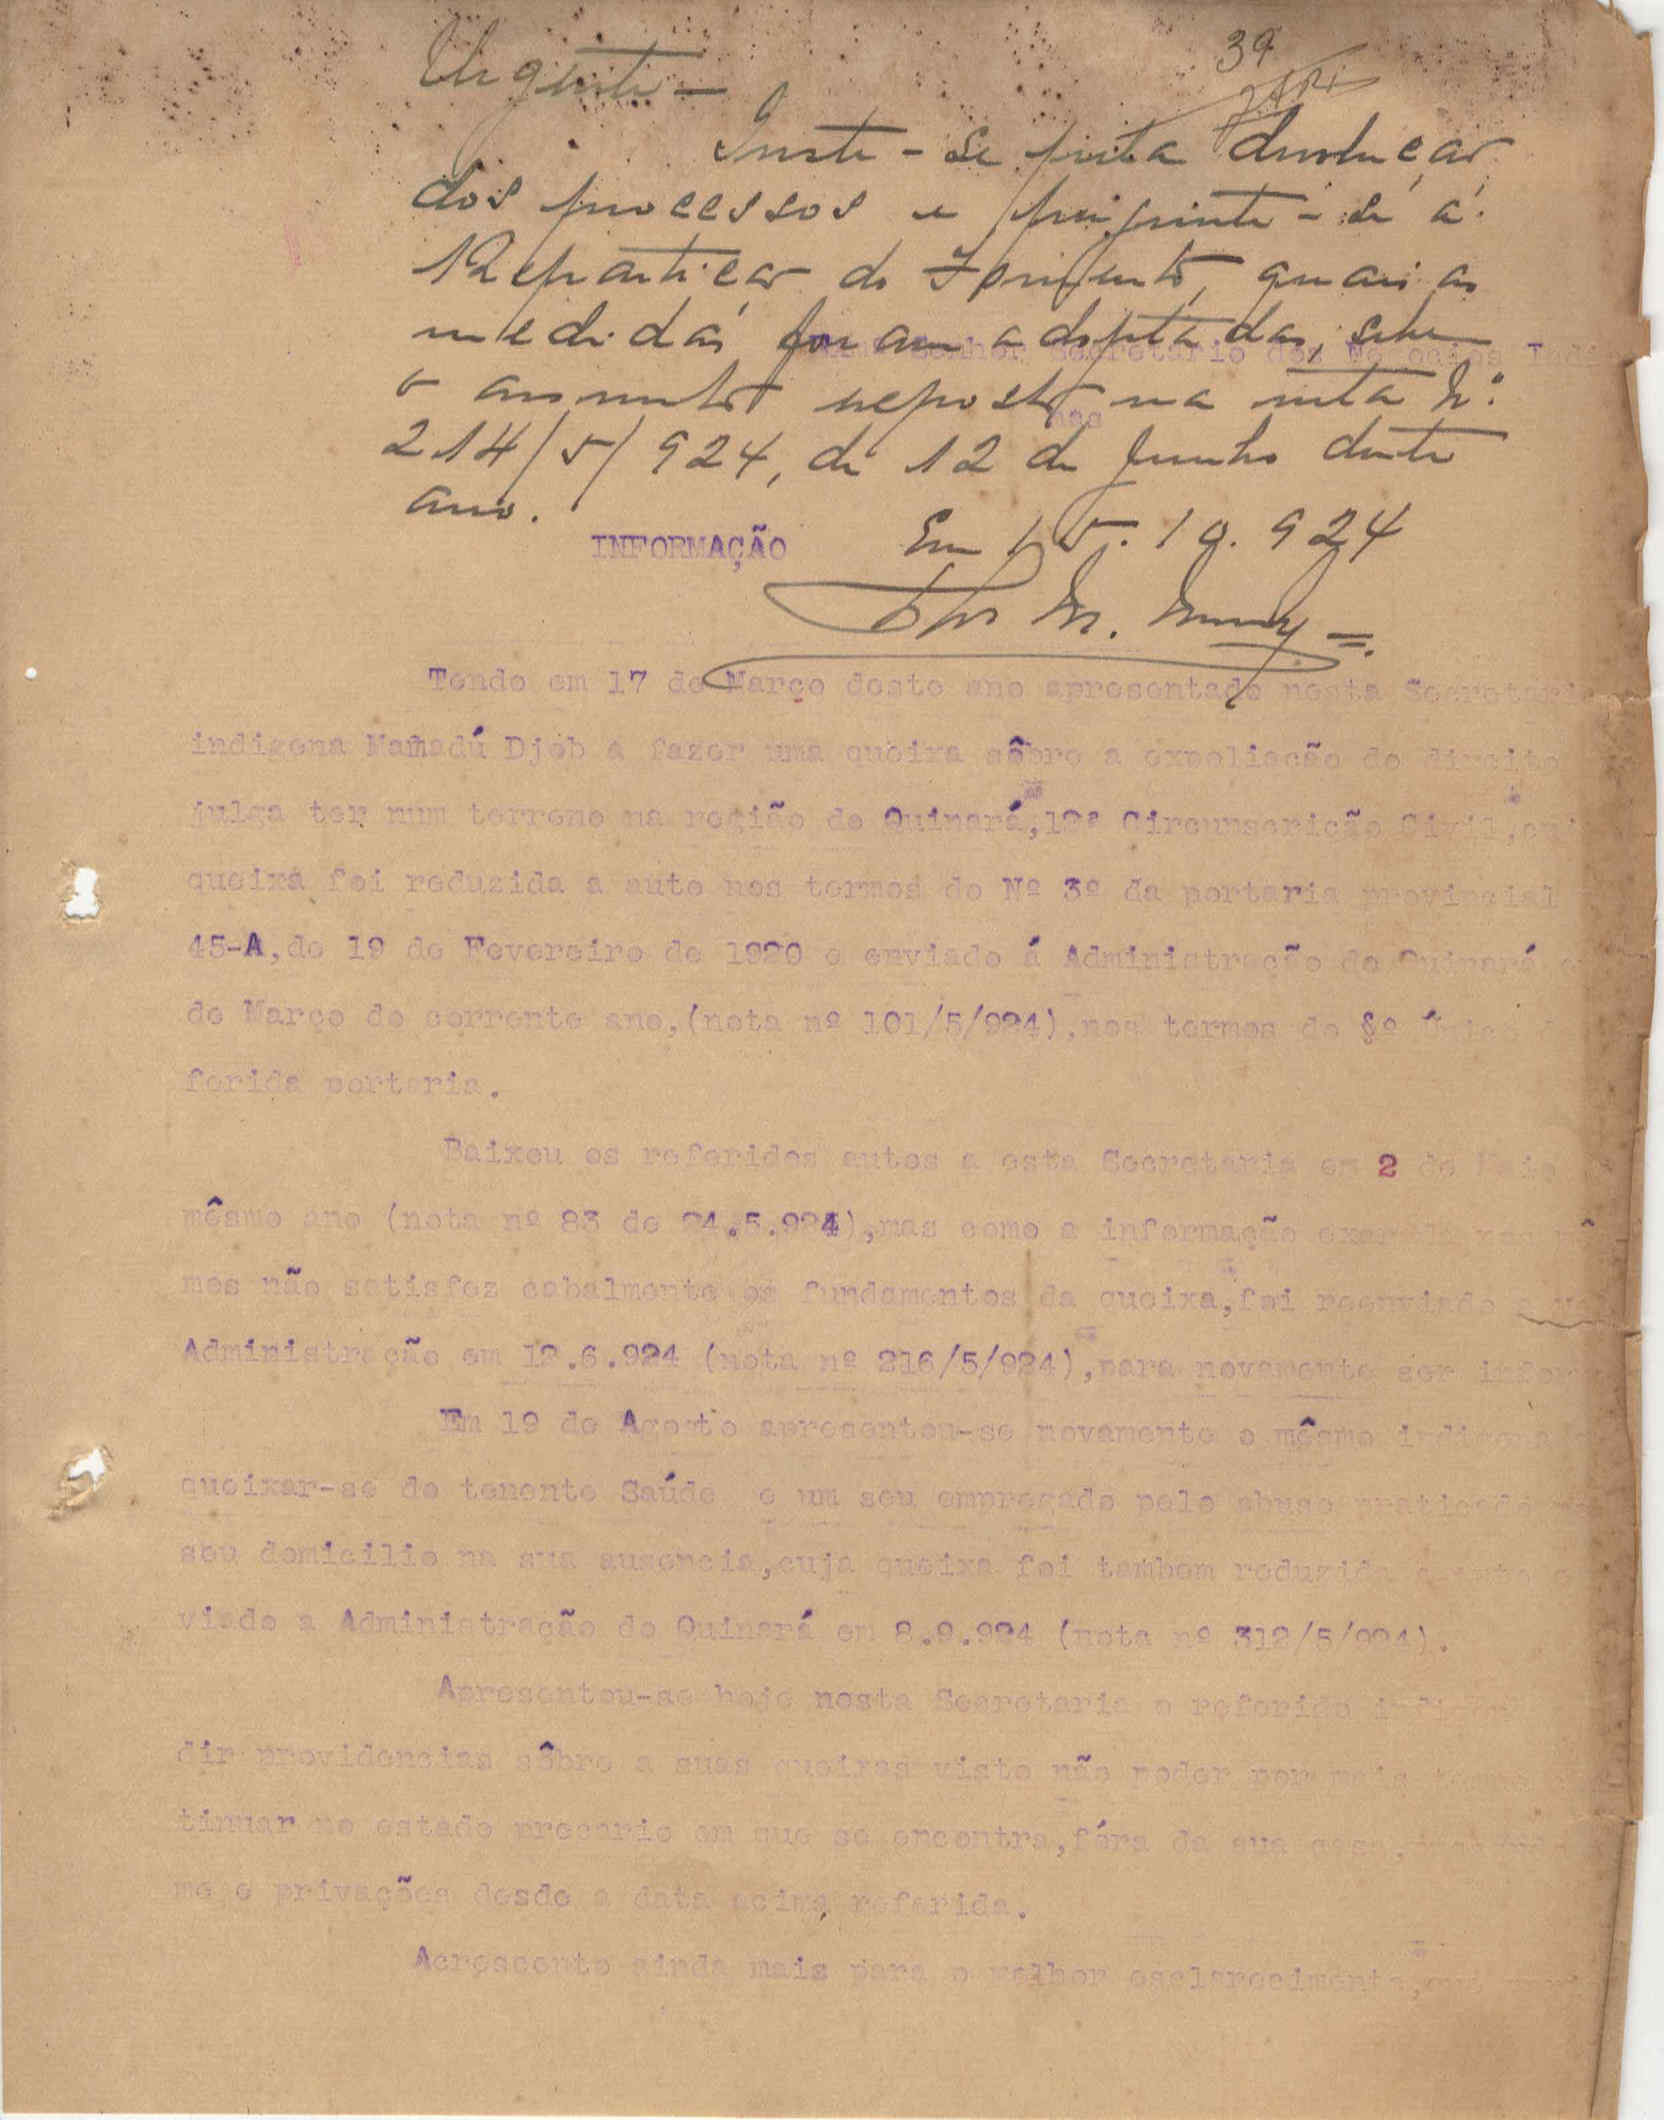 39
Urgente —
Inste-se pela devolução
dos processos e pergunte-se á
Repartição do Fomento, quais as
medidas foram adoptadas, sobre
Senhor Secretario dos Negocios Indi
o assunto exposto na nota Nº
nas
214/5/924, de 12 de Junho deste
ano.
INFORMAÇÃO
Em 15.10.924
Tendo em 17 de Março deste ano apresentado nesta Secretaria
indigena Mamadú Djob a fazer uma queixa sôbre a expoliação do direito
julga ter num terreno na região de Quinará,12ª Circunscrição Civil,
queixa foi reduzida a auto nos termos do Nº 3º da portaria provincial
45-A,de 19 de Fevereiro de 1920 e enviado á Administração de Quinará
de Março do corrente ano,(nota nº 101/5/924),nos termos do §º
ferida portaria.
Baixou os referidos autos a esta Secretaria em 2 de Maio
mêsmo ano (nota nº 83 de 24.5.924),mas como a informação
mos não satisfez cabalmente os fundamentos da queixa,foi reenviado
Administração em 12.6.924 (nota nº 216/5/924),para novamente ser infor
Em 19 de Agosto apresentou-se novamente o mêsmo indigena
queixar-se do tenente Saúde e um seu empregado pelo abuso praticado
seu domicilio na sua ausencia,cuja queixa foi tambem reduzida a auto
viado a Administração de Quinará em 8.9.924 (nota nº 312/5/924).
Apresentou-se hoje nesta Secretaria o referido
dir providencias sôbre a suas queixas visto não poder por mais tempo
tinuar no estado precario em que se encontra,fóra da sua casa,
me e privações desde a data acima referida.
Acrescento ainda mais para o melhor esclarecimento,